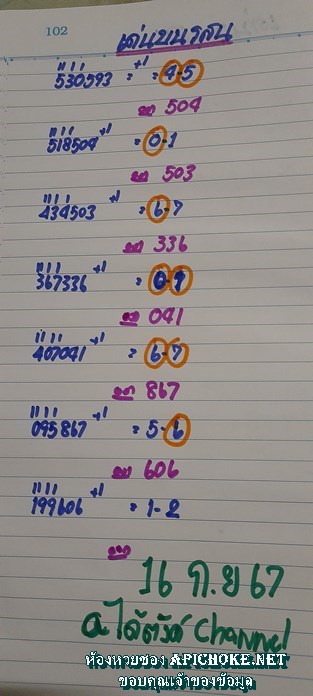 102
เด่นบนแสน
530593 +1 = 4-5
ออก 504
518504 +1 = 0-1
ออก 503
434503 +1 = 6-7
ออก 336
367336 +1 = 0-9
ออก 041
407041 +1 = 6-7
ออก 867
095867 +1 = 5-6
ออก 606
199606 +1 = 1-2
ออก
16 ก.ย 67
Channel
ห้องหวยซอง APICHOKE.NET
ขอบคุณเจ้าของข้อมูล